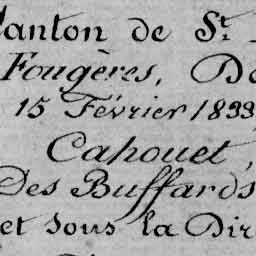 Canton de St.
Fougères, De
15 Février 1833
Cahouet,
Des Buffards
et sous la Dir